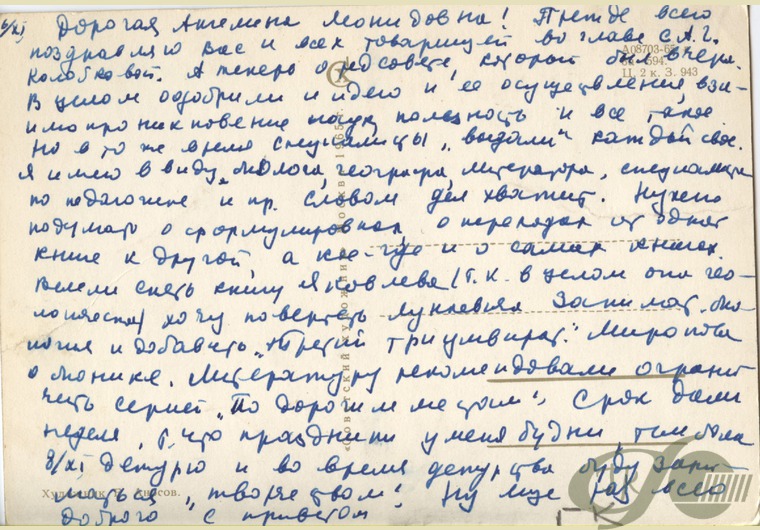 6/XI Дорогая Ангелина Леонидовна! Прежде всего
поздравляю Вас и всех товарищей во главе с А.Г.
Колобковой. А теперь о редсовете, который был вчера.
В целом одобрили и идею и ее осуществление, вза-
имопроникновение наук, полезность и все такое.
Но в то же время специалисты „выдали" каждый свое.
Я имею в виду биолога, географа, литератора, специалиста
по педагогике и пр. Словом дел хватит. Нужно
подумать о формулировках, о переходах от одной
книге к другой, а кое-где и о самих книгах.
Велели снять книгу Яковлева (т.к. в целом она гео-
логическая) хочу повертеть Лункевича Занимат. био-
логия и добавить „Третий триумвират". Миронова
о бионике. Литературу рекомендовали ограни-
чить серией „По дорогим местам". Срок дали
неделя, т.что праздники у меня будни, тем более
8/XI дежурю и во время дежурства буду зани-
маться „творчеством". Ну еще раз всего
доброго с приветом
А08703-65
594.
Ц. 2 к. З. 943
«Советский художник» Москва 1965 г.
Художник